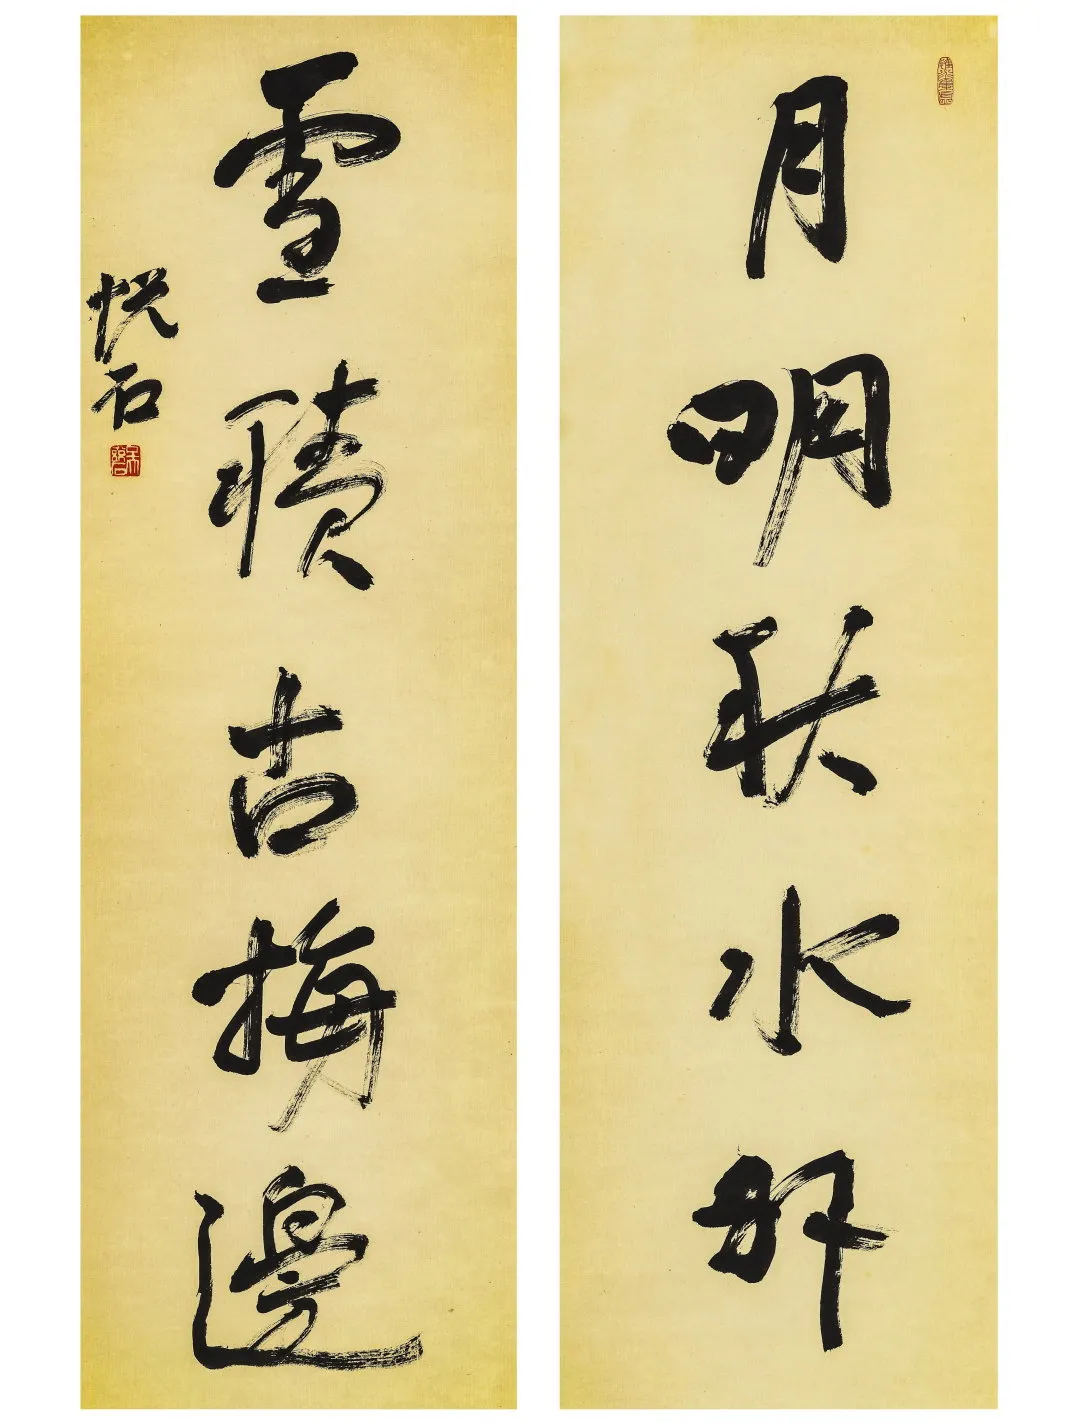 月明秋水
雪積古梅邊
悦石